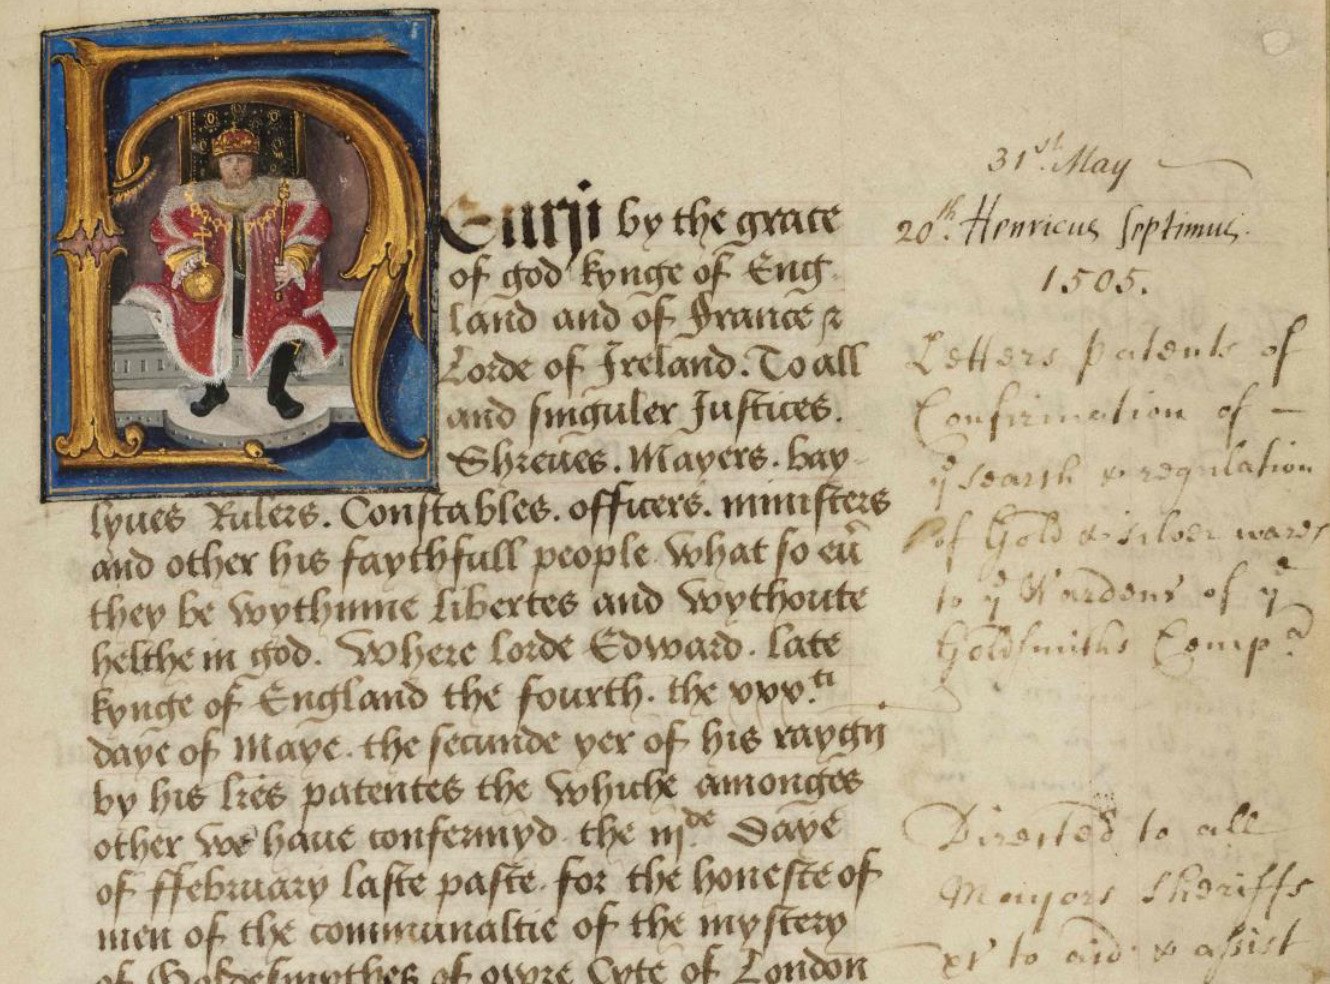 Henry by the grace
of god kynge of Eng
land and of France &
Lorde of Ireland. To all
and singuler Justices.
Shreues. Mayers. bay
lyues Rulers. Constables. officers. ministers
and other his faythfull people what so eu̅
they be wythinne libertes and wythoute
helthe in god. Where lorde Edward. late
kynge of England the fourth. the xxx.ti
daye of Maye. the secunde yer of his raygn
by his lr̅es patentes the whiche amonges
other we haue confermyd. the iijde. Daye
of ffebruary laste paste. for the honeste of
men of the communaltie of the mystery
of Goldesmythes of owre Cyte of London
31st. May
20th. Henricus Septimus.
1505.
Letters Patents of
Confirmation of
ye search & regulation
of Gold & silver wares
to ye Wardens of ye
Goldsmiths Compa.
Directed to all
Mayors Sheriffs
&c to aid & assist